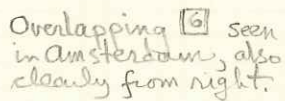 Overlapping 6 seen
in Amsterdam, also
clearly from right.